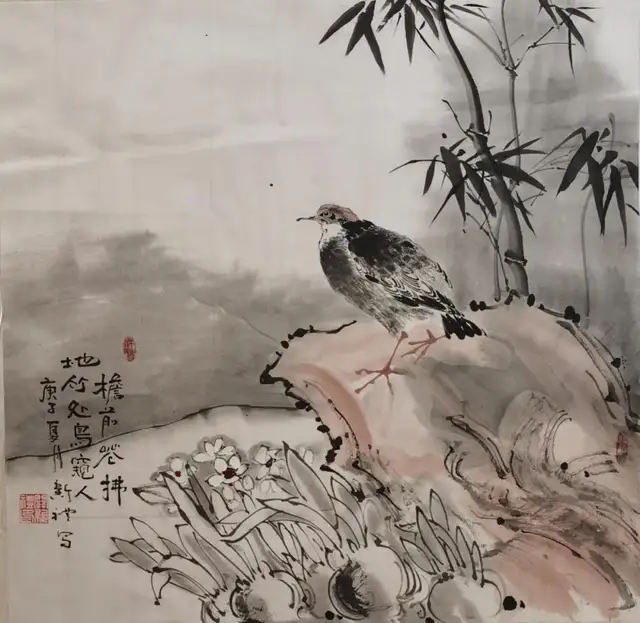 檐前花拂
地竹处鸟窥人
庚子夏月新写